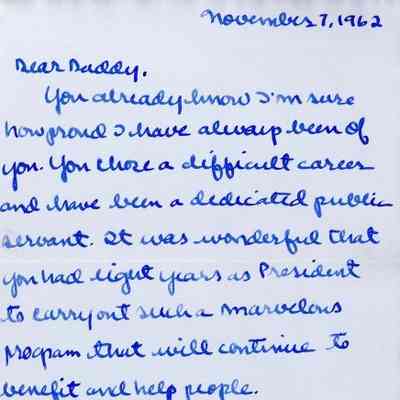 November 7, 1962
Dear Daddy.
You already know I'm sure
how proud I have always been of
you. You chose a difficult career
and have been a dedicated public
servant. It was wonderful that
you had eight years as President
to carry out such a marvelous
program that will continue to
benefit and help people.